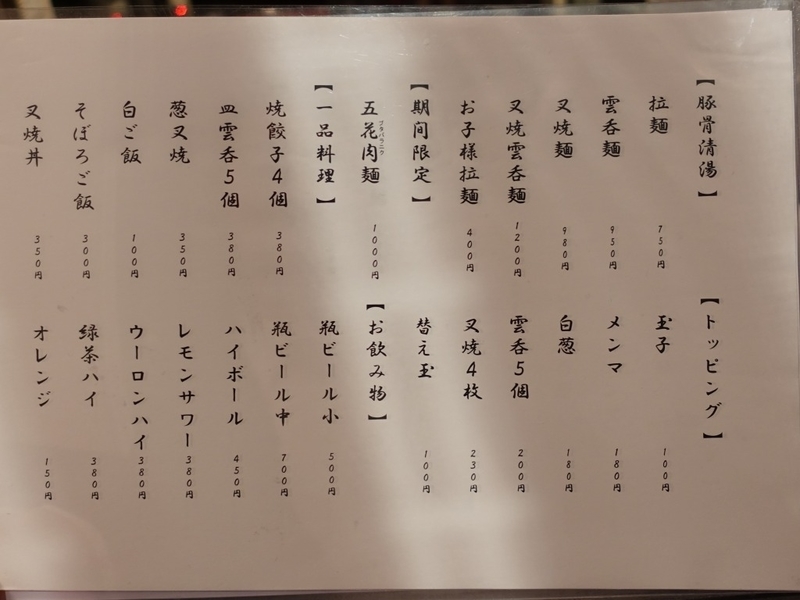 【豚骨清湯】
拉麺 750円
雲呑麺 950円
叉焼麺 980円
叉焼雲呑麺 1200円
お子様拉麺 400円
【期間限定】
五花肉麺 1000円
ブタバラニク
【一品料理】
焼餃子4個 380円
皿雲呑5個 380円
葱叉焼 350円
白ご飯 100円
そぼろご飯 300円
叉焼丼 350円
【トッピング】
玉子 100円
メンマ 180円
白葱 180円
雲呑5個 200円
叉焼4枚 230円
替え玉 100円
【お飲み物】
瓶ビール小 500円
瓶ビール中 700円
ハイボール 450円
レモンサワー 380円
ウーロンハイ 380円
緑茶ハイ 380円
オレンジ 150円